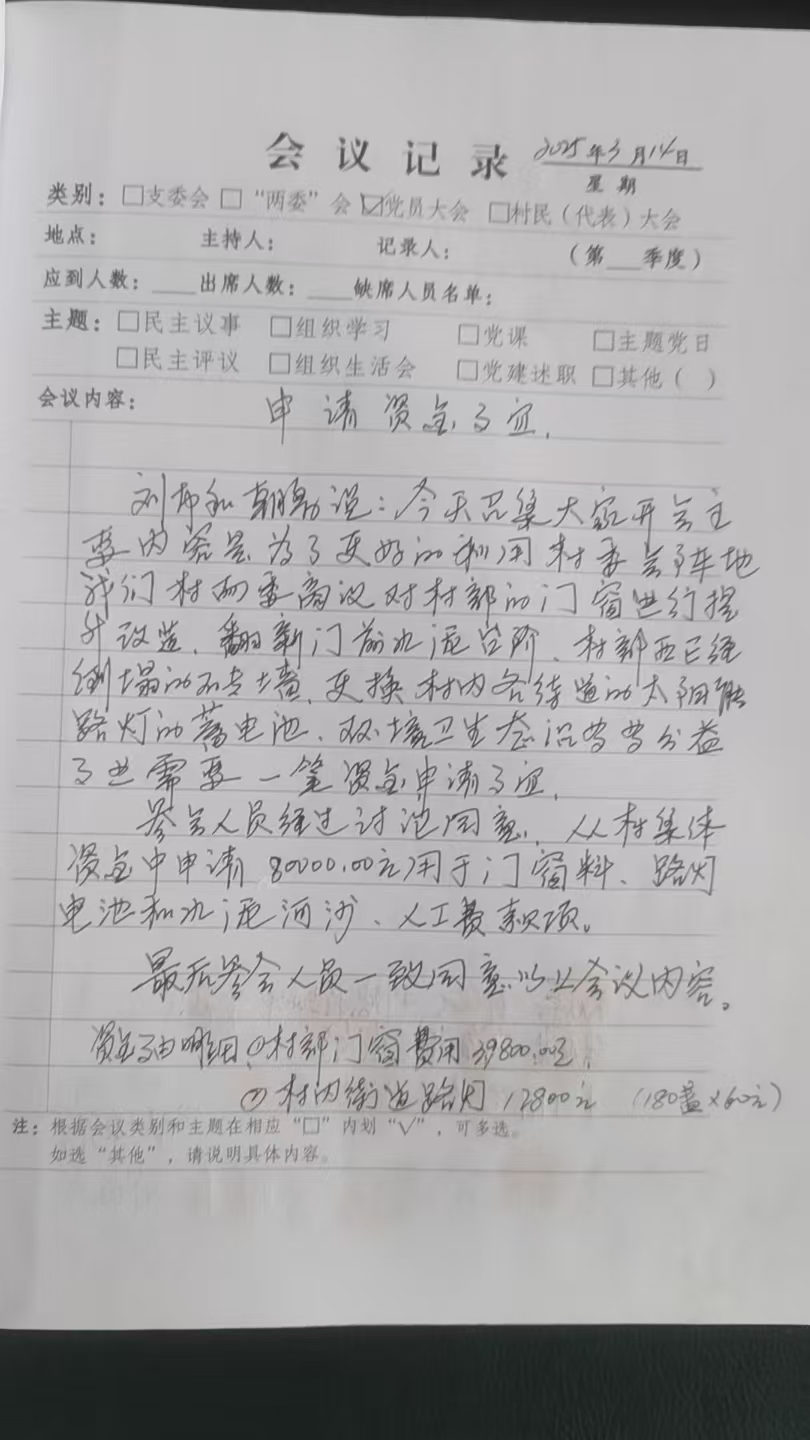 会议记录 2025年3月14日
星期
类别：□支委会 □“两委”会 ☑党员大会 □村民（代表）大会
地点： 主持人： 记录人： （第___季度）
应到人数：____出席人数：____缺席人员名单：
主题：□民主议事 □组织学习 □党课 □主题党日
□民主评议 □组织生活会 □党建述职 □其他（ ）
会议内容： 申请资金事宜.
刘 和朝勋说：今天召集大家开会主
要内容是为了更好的利用村委会阵地
我们村两委商议对村部的门窗进行提
升改造、翻新门前水泥台阶、村部西已经
倒塌的 墙、更换村内各街道的太阳能
路灯的蓄电池、环境卫生 公益
事 需要一笔资金申请事宜.
参会人员经过讨论同意、从村集体
资金中申请80000.00元用于门窗料、路灯
电池和水泥河沙、人工费款项。
最后参会人员一致同意以上会议内容。
资金 明细①村部门窗费用39800.00元.
②村内街道路灯12800元（180盏×60元）
注：根据会议类别和主题在相应“□”内划“√”，可多选。
如选“其他”，请说明具体内容。